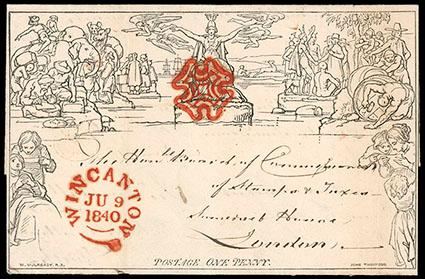 The Honble Board of Commissioners
of Stamps & Taxes
Somerset House
London
WINCANTON
JU 9
1840
POSTAGE ONE PENNY.
W. MULREADY, R.A.
JOHN THOMPSON